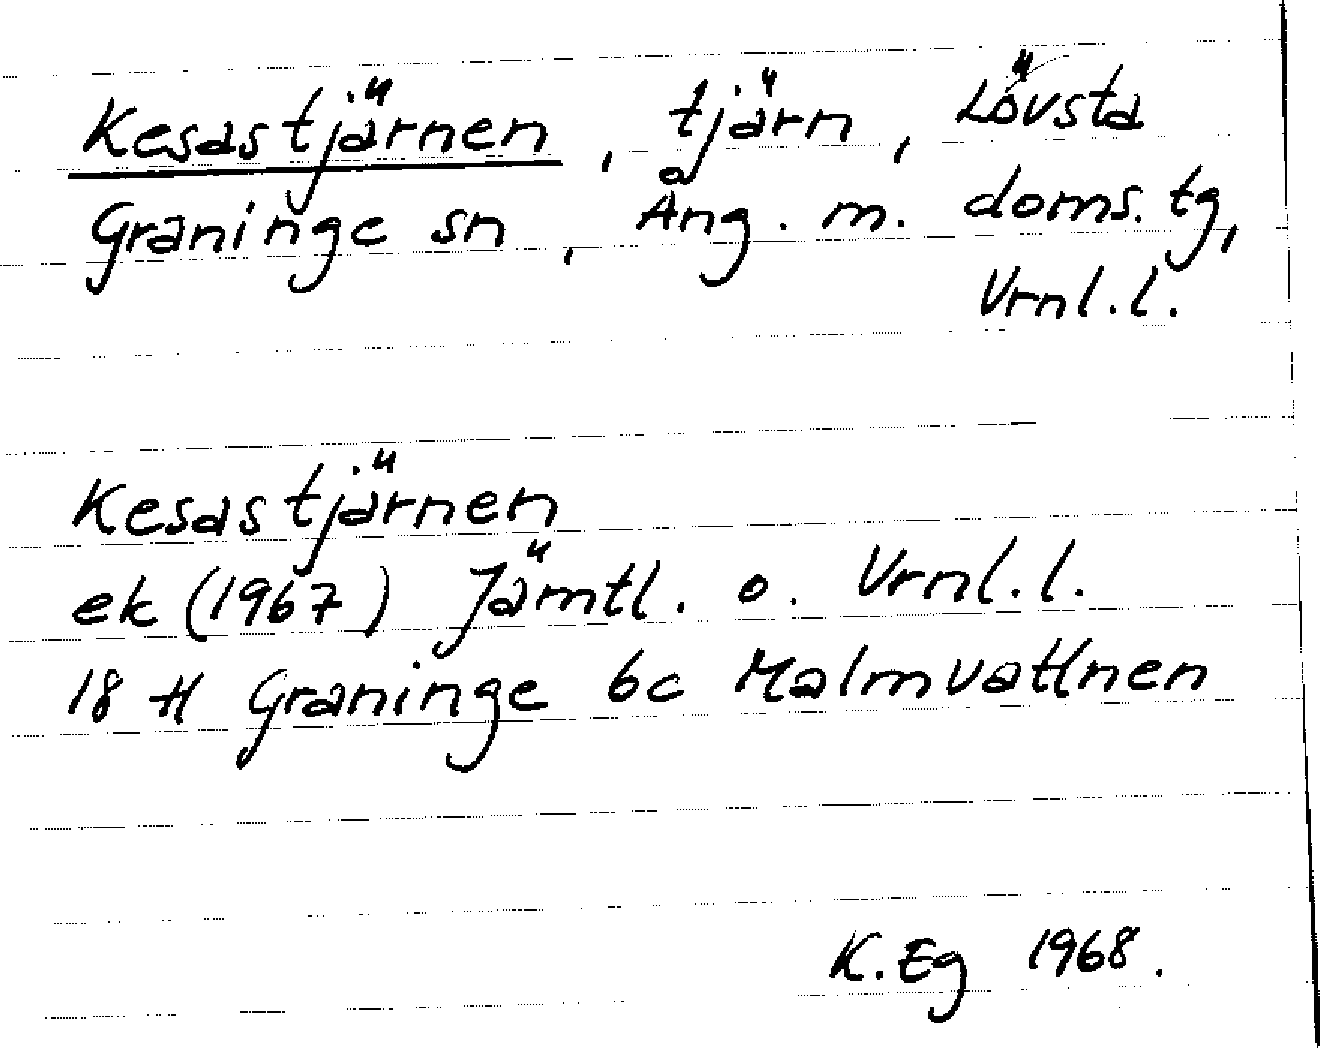 Kesastjärnen, tjärn, Lövsta
Graninge sn, Ång. m. doms. tg,
Vrnl.l.
Kesastjärnen
ek (1967) Jämtl. o. Vrnl.l.
18 H Graninge 6c Malmvattnen
K. Eg 1968.